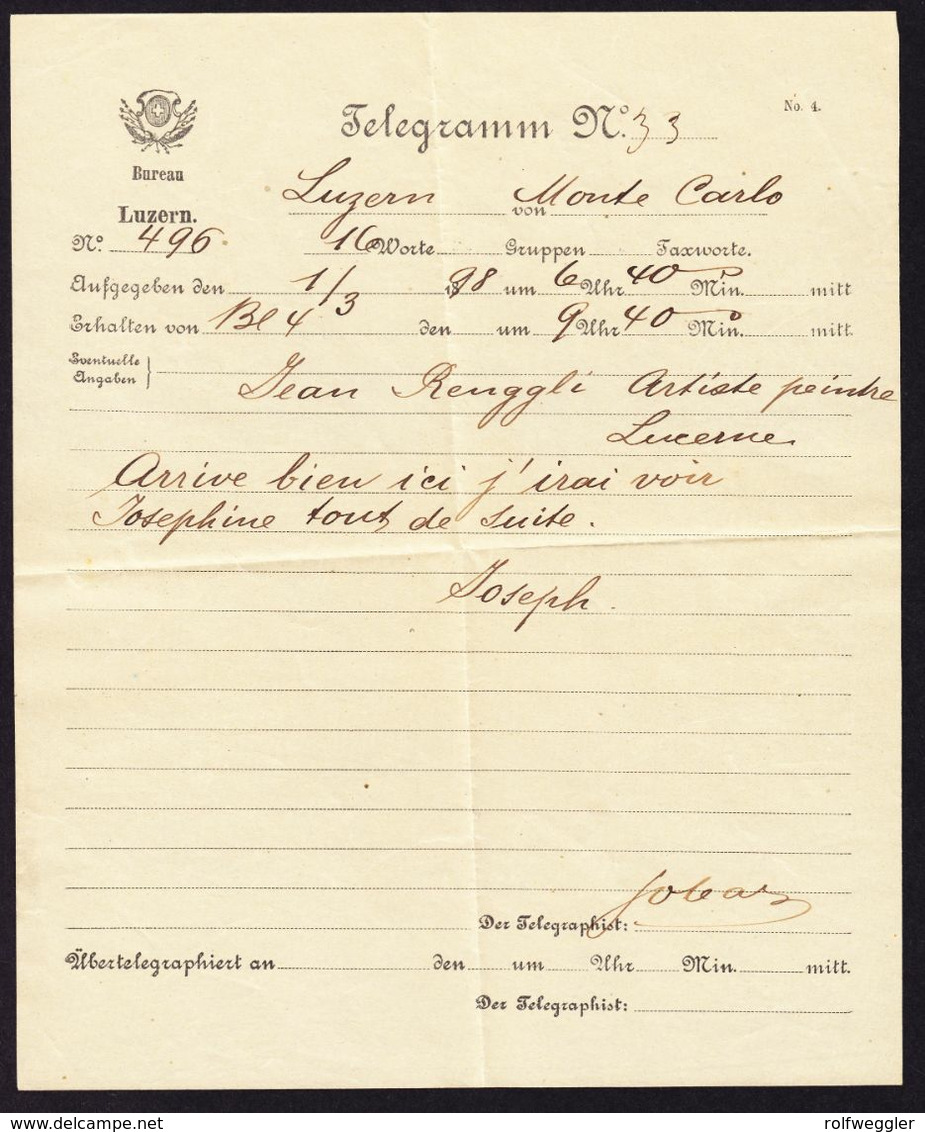 Telegramm No. 33
No. 4.
Bureau
Luzern.
Luzern von Monte Carlo
No. 496 16 Worte Gruppen Taxworte.
Aufgegeben den 1/3 1898 um 6 Uhr 40 Min. mitt
Erhalten von Bl 4 den um 9 Uhr 40 Min. mitt.
Eventuelle
Angaben
Jean Renggli Artiste peintre
Lucerne
Arrive bien ici j'irai voir
Josephine tout de suite.
Joseph.
Der Telegraphist:
Übertelegraphiert an den um Uhr Min. mitt.
Der Telegraphist:
delcampe.net
rolfweggler